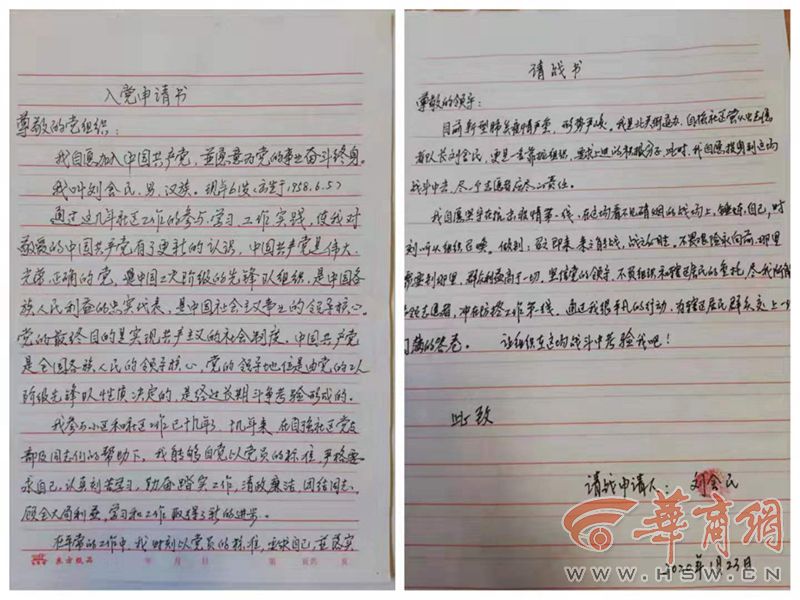 入党申请书
尊敬的党组织：
我自愿加入中国共产党，并愿意为党的事业奋斗终身。
我叫刘会民，男，汉族。现年61岁（出生于1958.6.5）
通过这几年社区工作的参与，学习，工作实践，使我对
敬爱的中国共产党有了更新的认识，中国共产党是伟大，
光荣，正确的党，是中国工人阶级的先锋队组织，是中国各
族人民利益的忠实代表，是中国社会主义事业的领导核心。
党的最终目的是实现共产主义的社会制度。中国共产党
是全国各族人民的领导核心，党的领导地位是由党的工人
阶级先锋队性质决定的，是经过长期斗争考验形成的。
我参与小区和社区工作已十几年了，十几年来，在自强社区党支
部及同志们的帮助下，我能够自觉以党员的标准，严格要
求自己，认真刻苦学习，勤奋踏实工作，清政廉洁，团结同志，
顾全大局利益，学习和工作取得了新的进步。
在平常的工作中，我时刻以党员的标准，要求自己，并落实
东方纸品 年 月 日 第 页 共 页
请战书
尊敬的领导：
目前新型肺炎疫情严重，形势严峻。我是北关街道办，自强社区
队长刘会民，更是一名靠拢组织，要求上进的积极分子，此时，我自愿投身到这场
战斗中去，尽一个志愿者应尽的责任。
我自愿坚守在抗击疫情第一线，在这场看不见硝烟的战场上，锤炼自己，时
刻听从组织召唤。做到：召之即来，来之能战，战之必胜。不畏艰险永向前，哪里
需要到哪里，群众利益高于一切，坚信党的领导，不负组织和辖区居民的重托，尽我所能
志愿者，冲在防控工作第一线。通过我很平凡的行动，为辖区居民群众交上一
满的答卷。 让组织在这场战斗中考验我吧！
此致
请战申请人：刘会民
2020年1月23日
华商网
WWW.HSW.CN